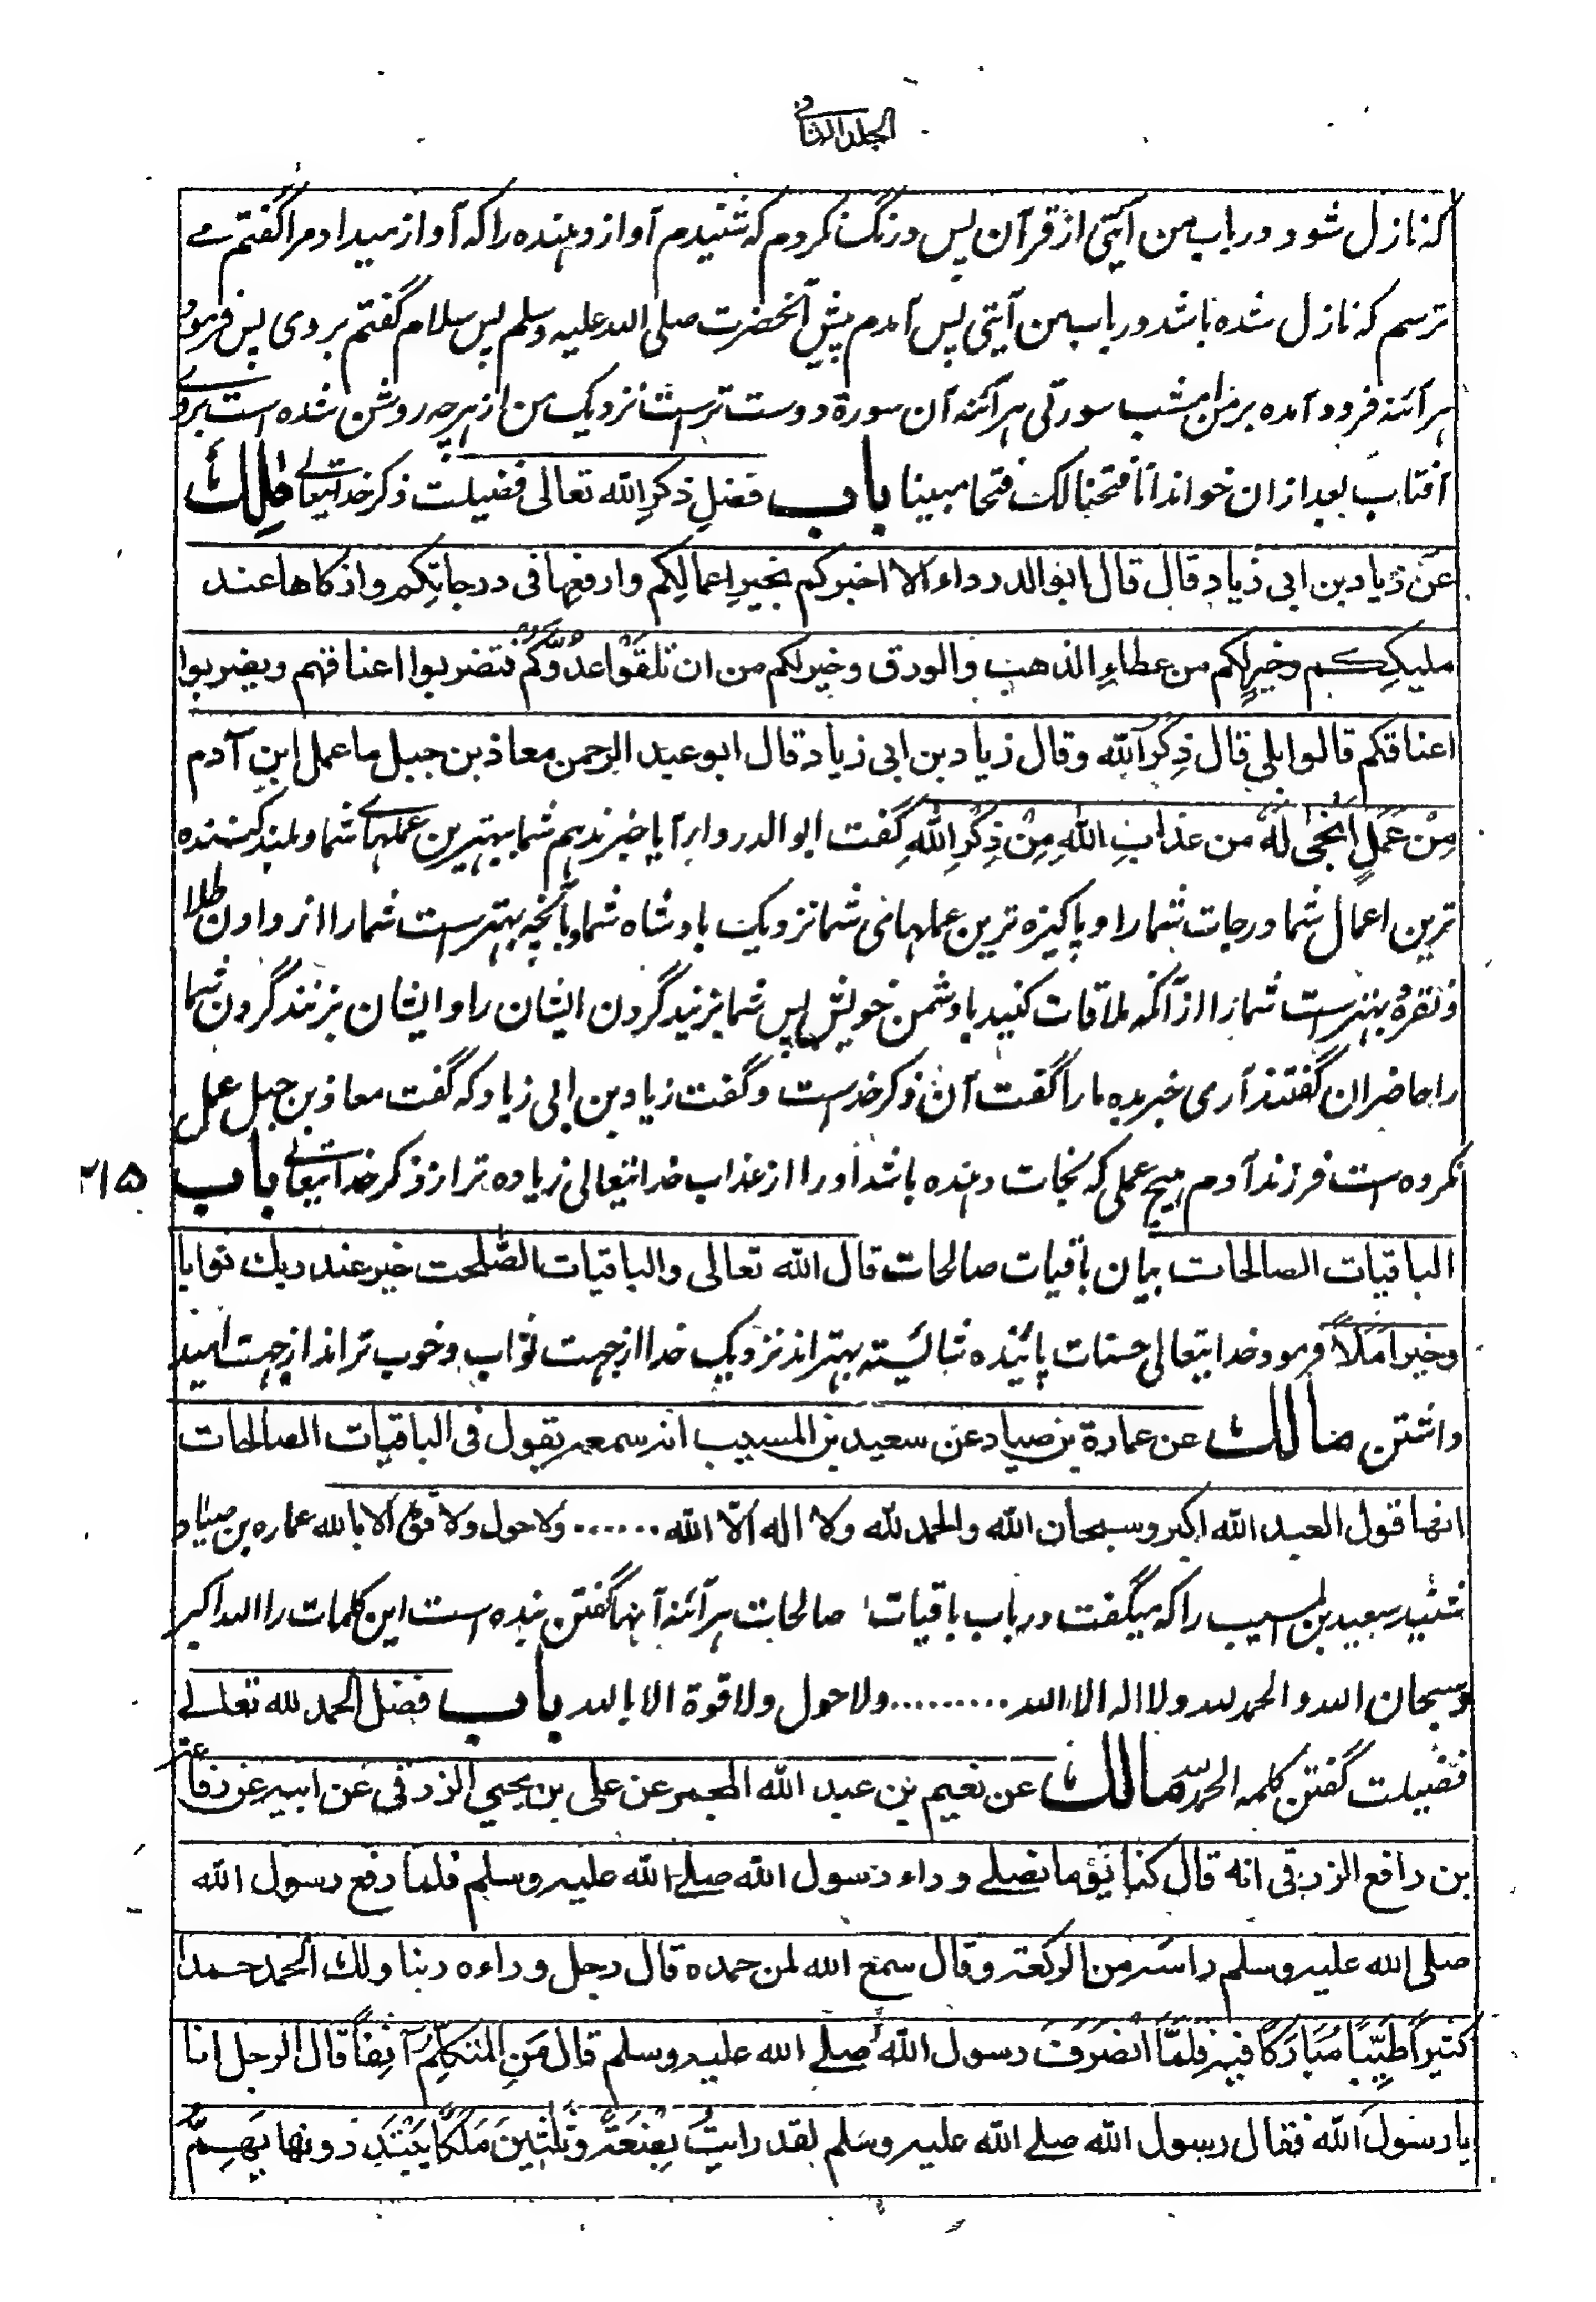 الجلد الثانی
که نازل شود در باب من آیتی از قرآن پس درنگ نکردم که شنیدم آواز دهنده را که آواز میداد مرا گفتم مے
ترسم که نازل شده باشد در باب من آیتی پس آمدم پیش آنحضرت صلی الله علیه وسلم پس سلام گفتم بر وی پس فرمود
هر آئنه فرود آمده بر من امشب سورتی هر آئنه آن سورة دوست ترست نزدیک من از هر چه روشن شده است بروے
آفتاب بعد ازان خواند انا فتحنا لک فتحا مبینا باب فضل ذکر الله تعالی فضیلت ذکر خدایتعالے مالك
عن زیاد بن ابی زیاد قال قال ابو الدرداء الا اخبرکم بخیر اعمالکم وارفعها فی درجاتکم وازکاها عند
ملیککم وخیر لکم من عطاء الذهب والورق وخیر لکم من ان تلقوا عدوکم فتضربوا اعناقهم ویضربوا
اعناقکم قالوا بلی قال ذکر الله وقال زیاد بن ابی زیاد قال ابو عبد الرحمن معاذ بن جبل ما عمل ابن آدم
مِنْ عَمَلٍ اَنْجٰی لَهٗ من عذابِ اللهِ مِنْ ذِکْرِ اللهِ گفت ابو الدرداء آیا خبر ندهم شما بهترین عملهاے شما و بلند کننده
ترین اعمال شما درجات شما را و پاکیزه ترین عملهای شما نزدیک بادشاه شما و بآنچه بهترست شما را از دادن طلا
و نقره و بهترست شما را ازآنکه ملاقات کنید با دشمن خویش پس شما بزنید گردن ایشان را و ایشان بزنند گردن شما
را حاضران گفتند آری خبر بده ما را گفت آن ذکر خداست و گفت زیاد بن ابی زیاد که گفت معاذ بن جبل عمل
نکرده است فرزند آدم هیچ عملی که نجات دهنده باشد اورا از عذاب خدایتعالی زیاده تر از ذکر خدایتعالے باب
۲۱۵
الباقیات الصالحات بیان باقیات صالحات قال الله تعالی والباقیات الصّٰلحت خیر عند ربك ثوابا
وخیر املاً فرمود خدایتعالی حسنات پائنده شائسته بهتر اند نزدیک خدا از جهت ثواب و خوب تر اند از جهت امید
داشتن مالك عن عمارة بن صیاد عن سعید بن المسیب انه سمعه یقول فی الباقیات الصالحات
انها قول العبد الله اکبر وسبحان الله والحمد لله ولا اله الا الله ....... ولا حول ولا قوة الا بالله عماره بن صیاد
شنید سعید بن المسیب را که میگفت در باب باقیات صالحات هر آئنه آنها گفتن بنده است این کلمات را الله اکبر
وسبحان الله والحمد لله ولا اله الا الله .......... ولا حول ولا قوة الا بالله باب فضل الحمد لله تعالے
فضیلت گفتن کلمه الحمد لله مالك عن نعیم بن عبد الله المجمر عن علی بن یحیی الزرقی عن ابیه عن رفاعة
بن رافع الزرقی انه قال کنا یوما نصلے وراء رسول الله صلے الله علیه وسلم فلما رفع رسول الله
صلی الله علیه وسلم راسه من الرکعة وقال سمع الله لمن حمده قال رجل وراءه ربنا ولك الحمد حمدا
کثیراً طَیِّبًا مُبَارَکًا فیه فلمَّا انْصَرَفَ رسول الله صلے الله علیه وسلم قال مَنِ الْمُتَکَلِّمُ آنِفاً قال الرجل انا
یا رسول الله فقال رسول الله صلے الله علیه وسلم لقد رایتُ بِضْعَةً وثلٰثِینَ مَلَکًا یَبْتَدِرُونها اَیُّهُمْ